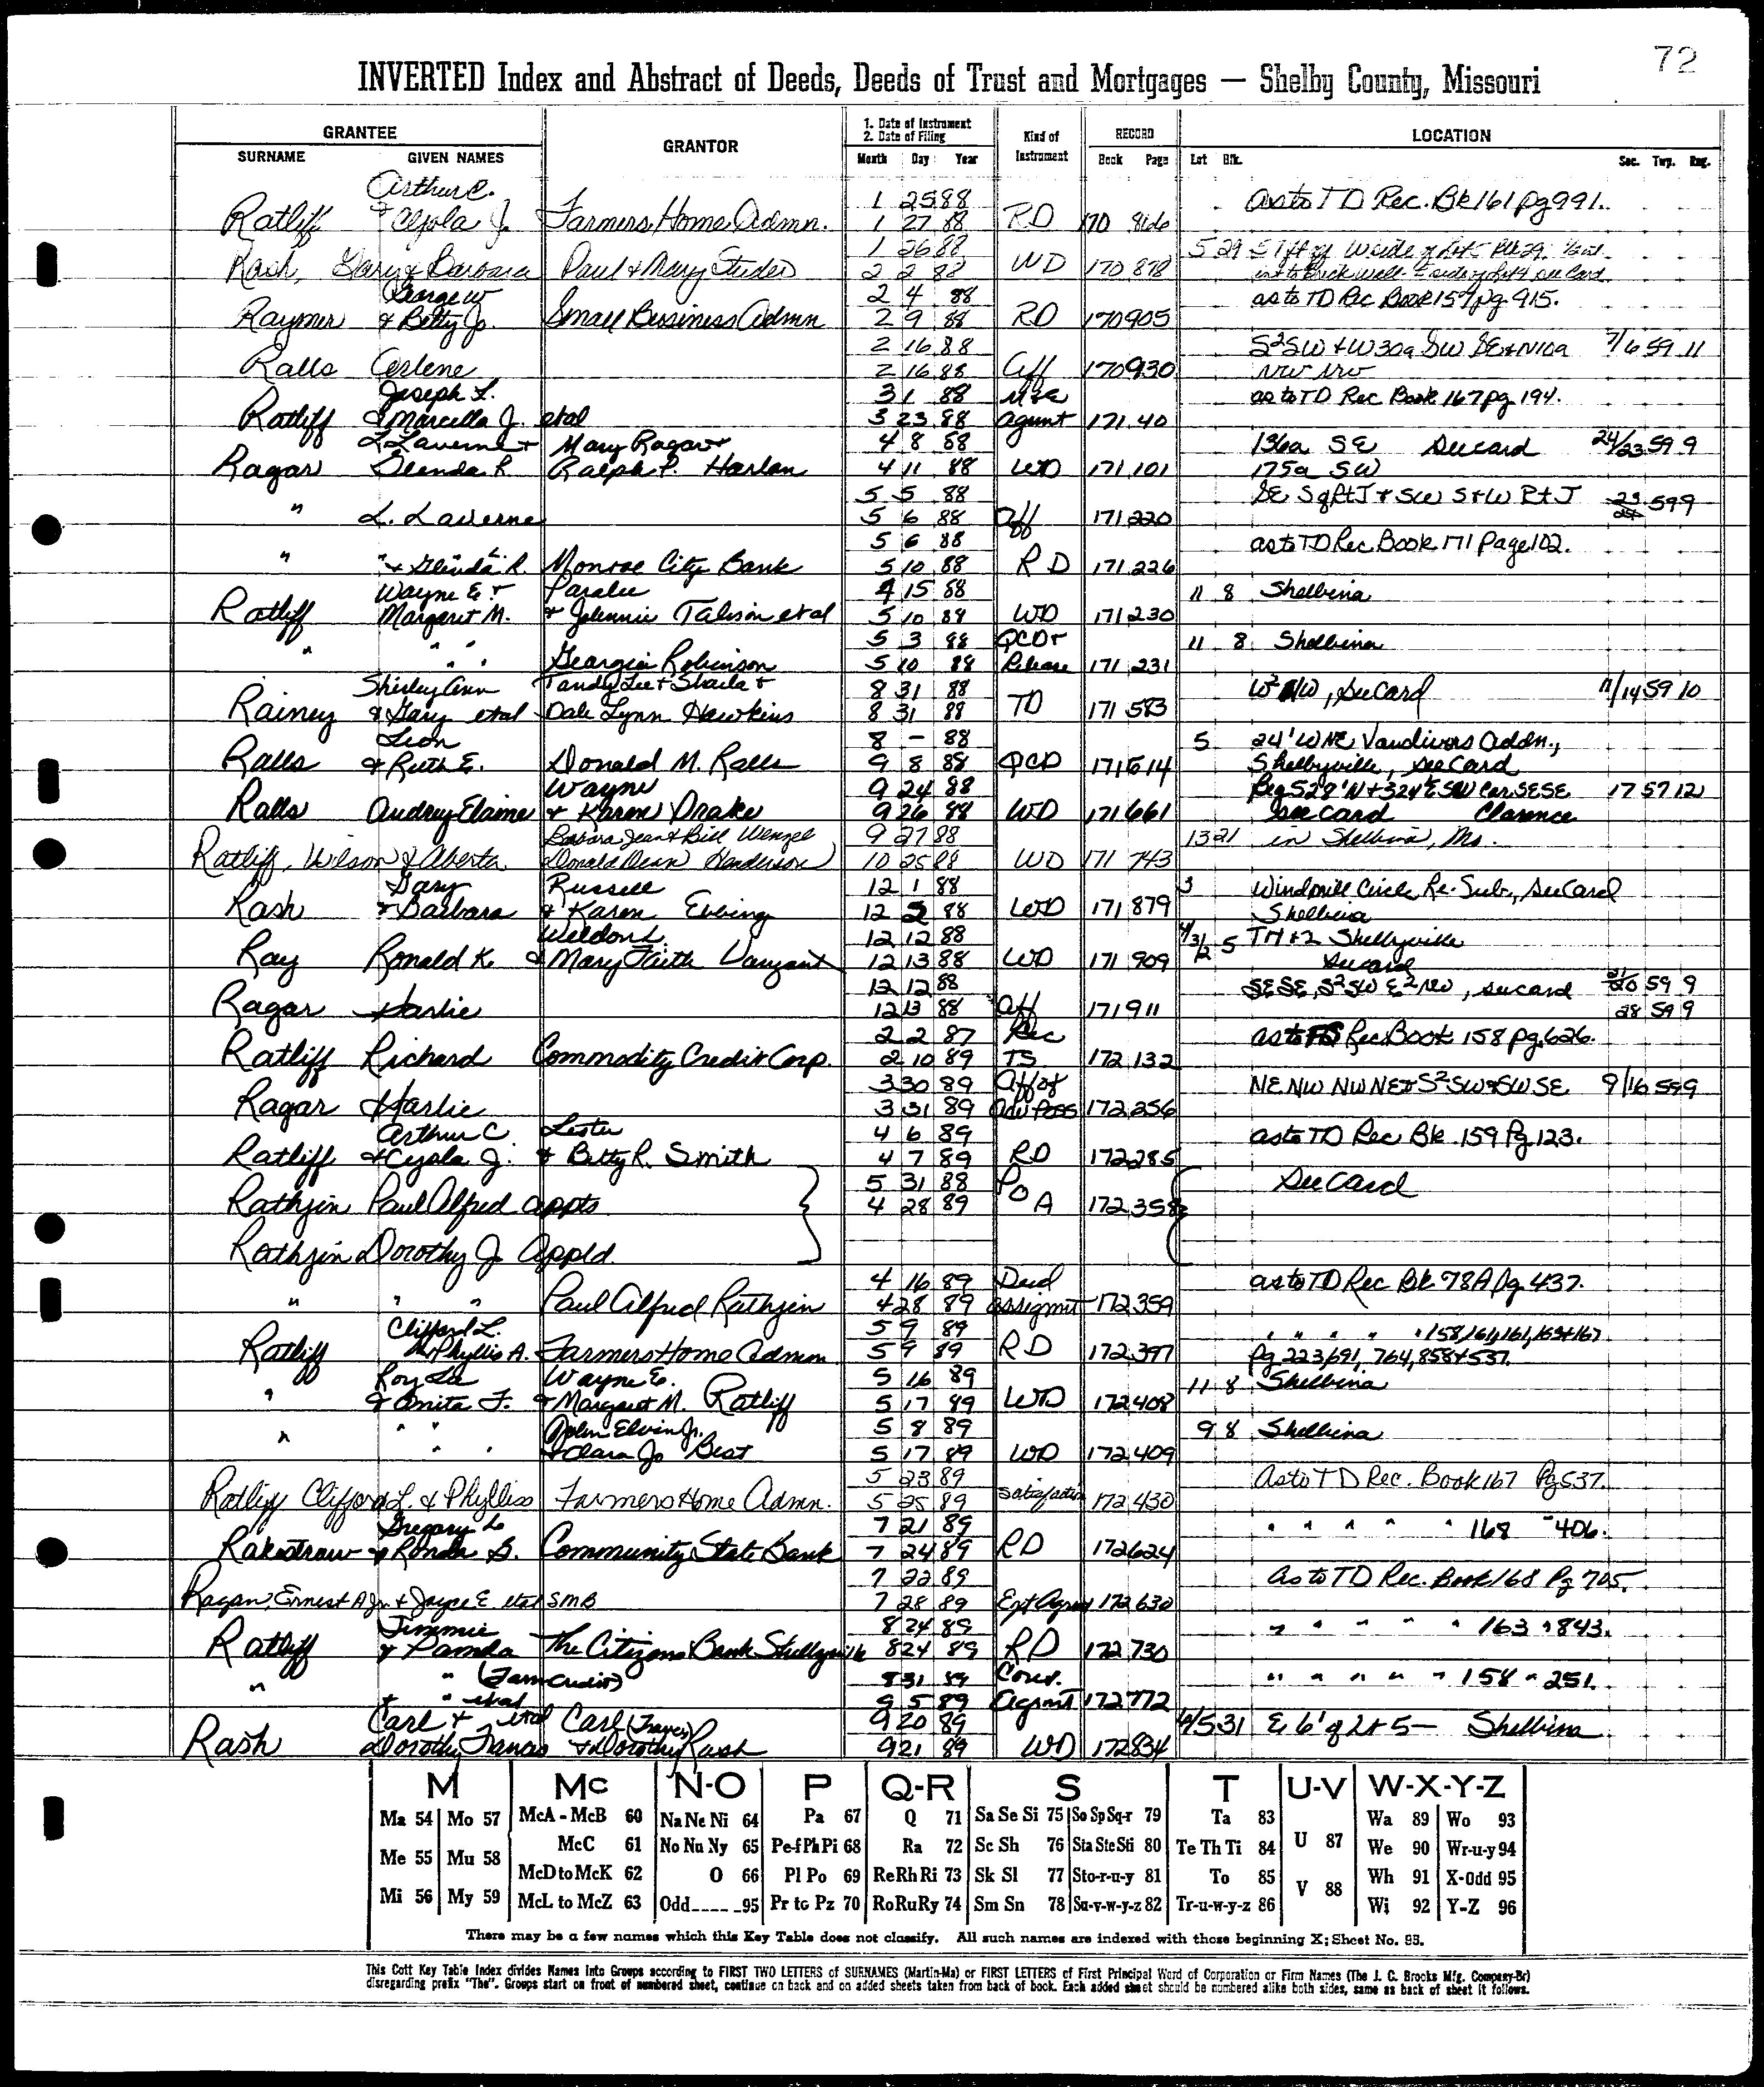 72
INVERTED Index and Abstract of Deeds, Deeds of Trust and Mortgages — Shelby County, Missouri
GRANTEE GRANTOR 1. Date of Instrument 2. Date of Filing Kind of Instrument RECORD LOCATION
SURNAME GIVEN NAMES Month Day Year Book Page Lot Blk. Sec. Twp. Rng.
Arthur C. 1 25 88 as to TD Rec. Bk 161 pg 991.
Ratliff & Cyola J. Farmers Home Admn. 1 27 88 RD 170 866
1 26 88 5 29
Rash, Gary & Barbara Paul & Mary Studer 2 2 88 WD 170 878
George W 2 4 88 as to TD Rec Book 157 pg. 915.
Raymer & Betty Jo. Small Business Admn 2 9 88 RD 170 905
2 16 88 S2SW & W30a SW SE & N10a 7/6 59 11
Ralls Arlene 2 16 88 Aff 170 930 NW NW
Joseph L. 3 1 88 as to TD Rec Book 167 pg 194.
Ratliff & Marcella J. etal 3 23 88 agmnt 171 40
L. Laverne & Mary Ragar & 4 8 88 136a SE See card 24/23 59 9
Ragar Glenda R. Ralph P. Harlan 4 11 88 WD 171 101 175a SW
5 5 88 59 9
" L. Laverne 5 6 88 Aff 171 220
5 6 88 as to TD Rec. Book 171 page 102.
" " & Glenda R. Monroe City Bank 5 10 88 RD 171 226
Wayne E. & Paralee 4 15 88 11 8 Shelbina
Ratliff Margaret M. & Johnnie Talison etal 5 10 88 WD 171 230
5 3 88 QCD & 11 8 Shelbina
" " " Georgia Robinson 5 10 88 Release 171 231
Shirley Ann Tandy Lee & Shaila & 8 31 88 W2 NW, See Card 11/14 59 10
Rainey & Gary etal Dale Lynn Hawkins 8 31 88 TD 171 583
Leon 8 - 88 5 24' W NE Vandivers Addn.,
Ralls & Ruth E. Donald M. Ralls 9 8 88 QCD 171 614 Shelbyville, See Card
Wayne 9 24 88 Beg 528' N & 324' E SW Cor SESE 17 57 12
Ralls Audrey Elaine & Karen Drake 9 26 88 WD 171 661 See card Clarence
Barbara Jean & Bill Wenzel 9 27 88 13 21 in Shelbina, Mo.
Ratliff, Wilson & Alberta Donald Dean Henderson 10 25 88 WD 171 743
Gary Russell 12 1 88 3 Windmill Circle Re-Sub., See Card
Rash & Barbara & Karen Ebbing 12 2 88 WD 171 879 Shelbina
Weldon L. 12 12 88 5 Shelbyville
Ray Ronald K. & Mary Faith Vanzant 12 13 88 WD 171 909 See card
12 12 88 SESE, S2SW E2NW, See card 59 9
Ragar Harlie 12 13 88 Aff 171 911 28 59 9
2 2 87 Rec as to FS Rec Book 158 pg. 626.
Ratliff Richard Commodity Credit Corp. 2 10 89 TS 172 132
3 30 89 Aff of NE NW NW NE & S2SW & SW SE 9/16 59 9
Ragar Harlie 3 31 89 Adv Poss 172 256
Arthur C. Lester 4 6 89 as to TD Rec Bk 159 Pg 123.
Ratliff & Cyola J. & Betty R. Smith 4 7 89 RD 172 285
5 31 88 See Card
Rathjin Paul Alfred appts 4 28 89 PoA 172 358
Rathjin Dorothy J. Appld.
4 16 89 Deed as to TD Rec Bk 78A Pg. 437.
" " " Paul Alfred Rathjin 4 28 89 assignmt 172 359
Clifford L. 5 9 89 " " " " " 158, 161, 161, 163 & 167
Ratliff & Phyllis A. Farmers Home Admn 5 9 89 RD 172 397 Pg 223, 691, 764, 858 & 537.
Roy Lee Wayne E. 5 16 89 11 8 Shelbina
" & Anita F. & Margaret M. Ratliff 5 17 89 WD 172 408
John Elvin Jr. 5 8 89 9 8 Shelbina
" " " & Clara Jo Best 5 17 89 WD 172 409
5 23 89 As to TD Rec. Book 167 Pg 537.
Ratliff Clifford L. & Phyllis Farmers Home Admn. 5 25 89 Satisfaction 172 430
Gregory L. 7 21 89 " " " " " 168 " 406.
Rakestraw & Ronda S. Community State Bank 7 24 89 RD 172 624
7 22 89 As to TD Rec. Book 168 Pg 705.
Ragan, Ernest A Jr. & Joyce E. etal SMB 7 28 89 Ext Agrmt 172 630
Jimmie 8 24 89 " " " " " 163 " 843.
Ratliff & Pamela The Citizens Bank Shelbyville 8 24 89 RD 172 730
" " (Farm Credit) 8 31 89 " " " " " 158 " 251.
& " etal 9 5 89 Agrmt 172 772
Carl & etal Carl (Francis) 9 20 89 31 E 6' of Lt 5 — Shelbina
Rash Dorothy Francis & Dorothy Rash 9 21 89 WD 172 834
M Mc N-O P Q-R S T U-V W-X-Y-Z
Ma 54 Mo 57 McA - McB 60 Na Ne Ni 64 Pa 67 Q 71 Sa Se Si 75 So Sp Sq-r 79 Ta 83 U 87 Wa 89 Wo 93
Me 55 Mu 58 McC 61 No Nu Ny 65 Pe-f Ph Pi 68 Ra 72 Sc Sh 76 Sta Ste Sti 80 Te Th Ti 84 We 90 Wr-u-y 94
McD to McK 62 O 66 Pl Po 69 Re Rh Ri 73 Sk Sl 77 Sto-r-u-y 81 To 85 V 88 Wh 91 X-Odd 95
Mi 56 My 59 McL to McZ 63 Odd 95 Pr to Pz 70 Ro Ru Ry 74 Sm Sn 78 Su-v-w-y-z 82 Tr-u-w-y-z 86 Wi 92 Y-Z 96
There may be a few names which this Key Table does not classify. All such names are indexed with those beginning X; Sheet No. 95.
This Cott Key Table Index divides Names into Groups according to FIRST TWO LETTERS of SURNAMES (Martin-Ma) or FIRST LETTERS of First Principal Word of Corporation or Firm Names (The J. C. Brooks Mfg. Company-Br)
disregarding prefix "The". Groups start on front of numbered sheet, continue on back and on added sheets taken from back of book. Each added sheet should be numbered alike both sides, same as back of sheet it follows.